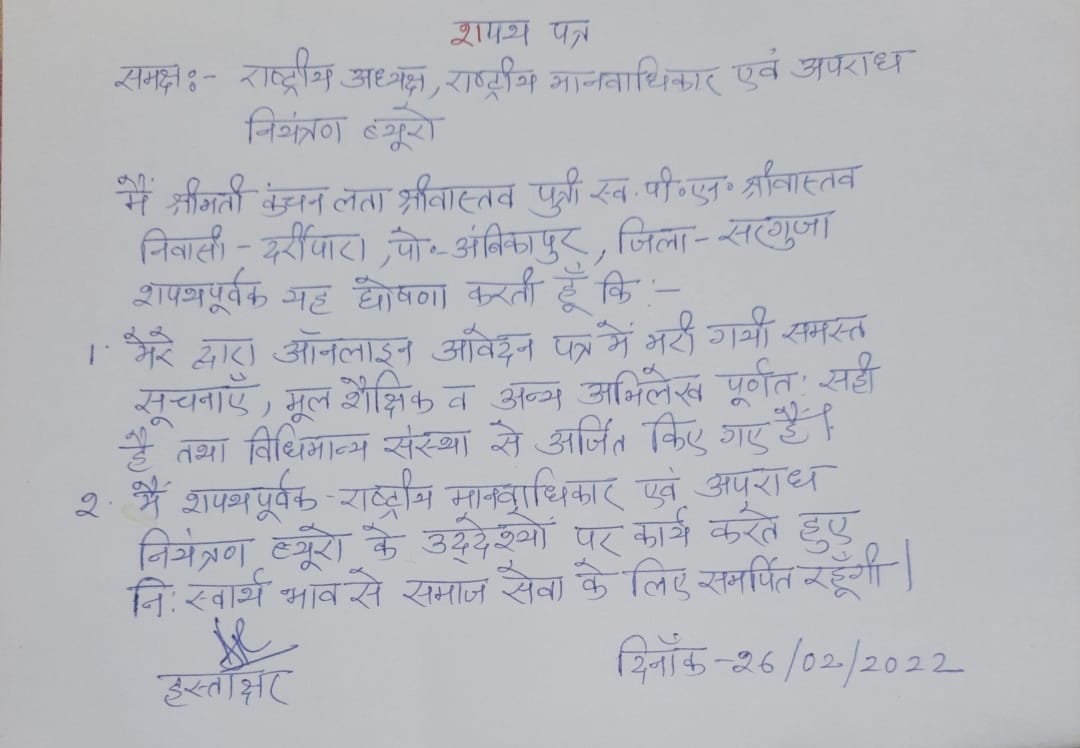 शपथ पत्र
समक्षः- राष्ट्रीय अध्यक्ष, राष्ट्रीय मानवाधिकार एवं अपराध
नियंत्रण ब्यूरो
मैं श्रीमती कंचन लता श्रीवास्तव पुत्री स्व. पी॰एन॰ श्रीवास्तव
निवासी - दर्रीपारा, पो॰- अंबिकापुर, जिला - सरगुजा
शपथपूर्वक यह घोषणा करती हूँ कि :-
1. मेरे द्वारा ऑनलाइन आवेदन पत्र में भरी गयी समस्त
सूचनाएँ, मूल शैक्षिक व अन्य अभिलेख पूर्णत: सही
है तथा विधिमान्य संस्था से अर्जित किए गए हैं।
२. मैं शपथपूर्वक राष्ट्रीय मानवाधिकार एवं अपराध
नियंत्रण ब्यूरो के उद्देश्यों पर कार्य करते हुए
नि: स्वार्थ भाव से समाज सेवा के लिए समर्पित रहूँगी।
हस्ताक्षर
दिनाँक - २6/02/2022